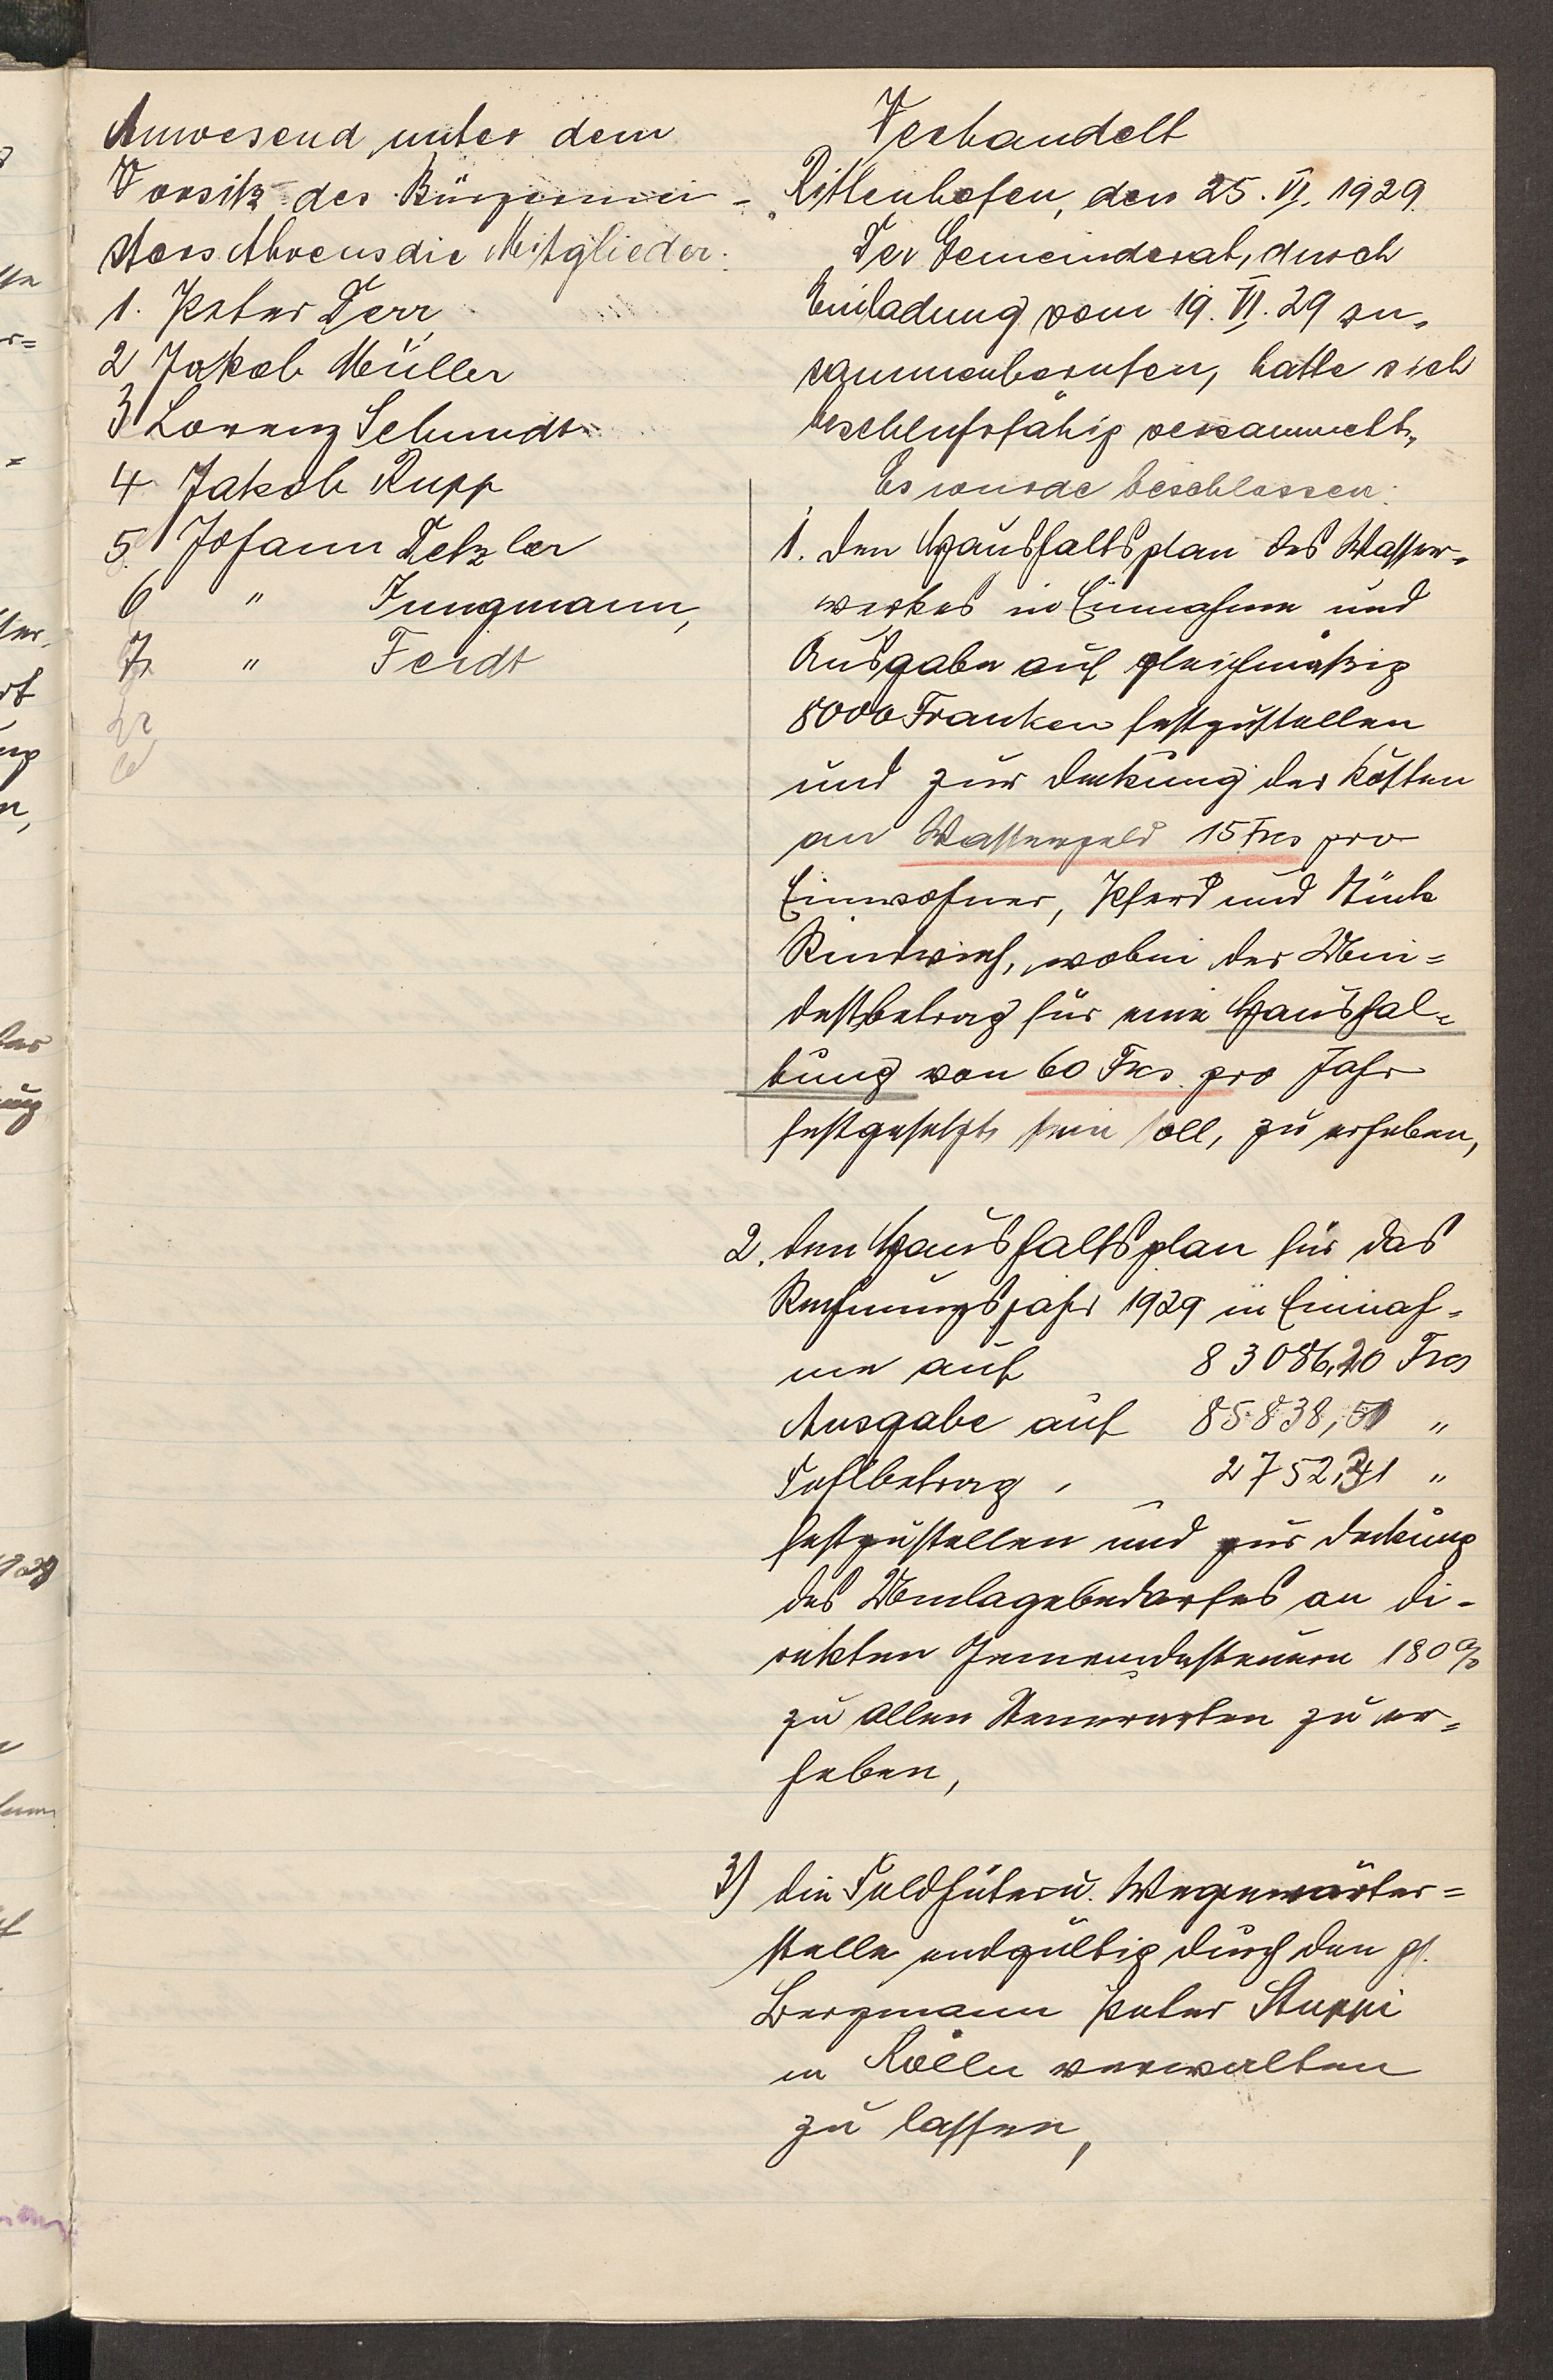 Anwesend unter dem
Vorsitz des Bürgermei-
sters Ahrens die Mitglieder:
1. Peter Derr,
2 Jakob Müller
3 Lorenz Schmidt
4 Jakob Rupp
5. Johann Detzler
6 " Jungmann,
7. " Feidt
Verhandelt
Rittenhofen, den 25. VI. 1929.
Der Gemeinderat, durch
Einladung vom 19. VI. 29 zu-
sammenberufen, hatte sich
beschlußfähig versammelt.
Es wurde beschlossen:
1. den Haushaltsplan des Wasser-
werkes in Einnahme und
Ausgabe auf gleichmäßig
8000 Franken festzustellen
und zur Deckung der Kosten
an Wassergeld 15 Frcs pro
Einwohner, Pferd und Stück
Rindvieh, wobei der Min-
destbetrag für eine Haushal-
tung von 60 Frcs. pro Jahr
festgesetzt sein soll, zu erheben,
2. den Haushaltsplan für das
Rechnungsjahr 1929 in Einnah-
me auf 83086,20 Frcs
Ausgabe auf 85838,51 "
Fehlbetrag 2752,31 "
festzustellen und zur Deckung
des Umlagebedarfes an di-
rekten Gemeindesteuern 180%
zu allen Steuerarten zu er-
heben,
3) die Feldhüter u. Wegewärter-
stelle endgültig durch den
Bergmann Peter Stuppi
in Kölln verwalten
zu lassen,